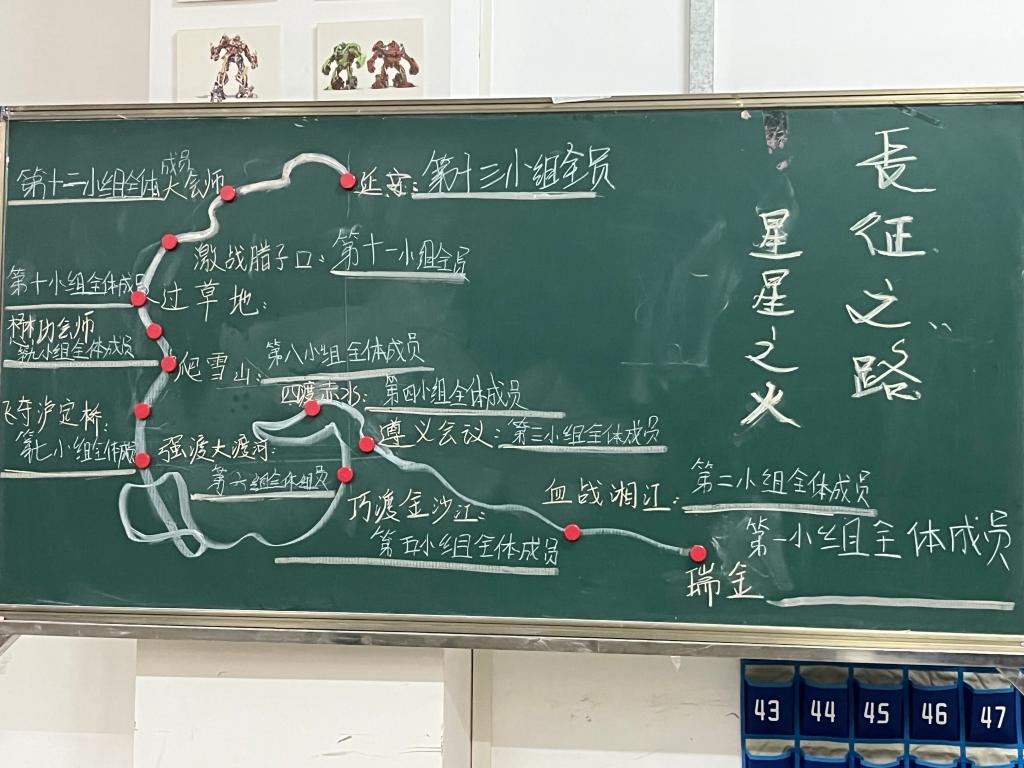 长征之路
星星之火
第十二小组全体成员
大会师
延安：第十三小组全员
激战腊子口：第十一小组全员
第十小组全体成员
过草地：
懋功会师
第九小组全体成员
爬雪山：第八小组全体成员
四渡赤水：第四小组全体成员
飞夺泸定桥：
第七小组全体成员
强渡大渡河：
第六组全体组员
遵义会议：第三小组全体成员
巧渡金沙江：
第五小组全体成员
血战湘江：第二小组全体成员
瑞金
第一小组全体成员
43 44 45 46 47